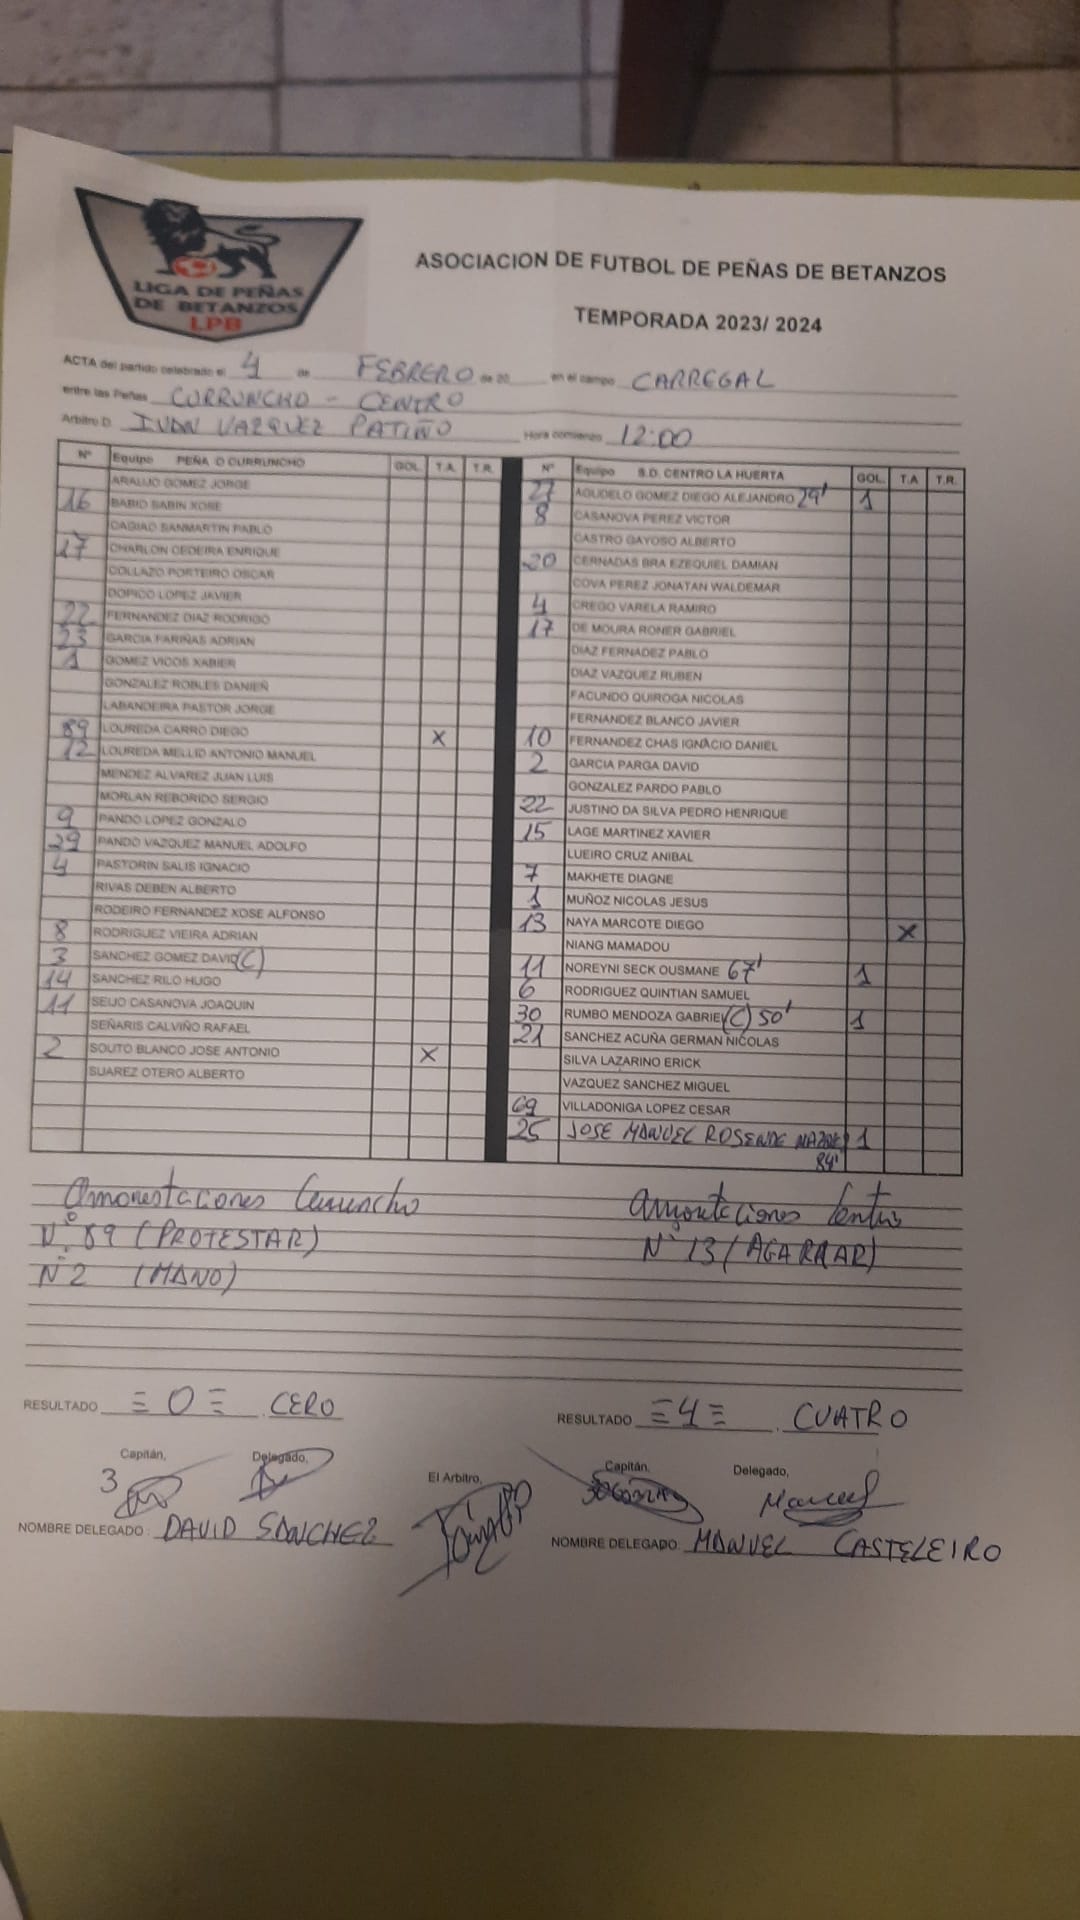 LIGA DE PEÑAS
DE BETANZOS
LPB
ASOCIACION DE FUTBOL DE PEÑAS DE BETANZOS
TEMPORADA 2023/ 2024
ACTA del partido celebrado el 4 de FEBRERO de 20 en el campo CARREGAL
entre las Peñas CURRUNCHO - CENTRO
Arbitro D. IVAN VAZQUEZ PATIÑO Hora comienzo 12:00
Nº Equipo PEÑA O CURRUNCHO GOL. T.A. T.R.
ARAUJO GOMEZ JORGE
16 BABIO SABIN XOSE
CAGIAO SANMARTIN PABLO
17 CHARLON CEDEIRA ENRIQUE
COLLAZO PORTEIRO OSCAR
DOPICO LOPEZ JAVIER
22 FERNANDEZ DIAZ RODRIGO
23 GARCIA FARIÑAS ADRIAN
1 GOMEZ VICOS XABIER
GONZALEZ ROBLES DANIEÑ
LABANDEIRA PASTOR JORGE
89 LOUREDA CARRO DIEGO X
12 LOUREDA MELLID ANTONIO MANUEL
MENDEZ ALVAREZ JUAN LUIS
MORLAN REBORIDO SERGIO
9 PANDO LOPEZ GONZALO
29 PANDO VAZQUEZ MANUEL ADOLFO
4 PASTORIN SALIS IGNACIO
RIVAS DEBEN ALBERTO
RODEIRO FERNANDEZ XOSE ALFONSO
8 RODRIGUEZ VIEIRA ADRIAN
3 SANCHEZ GOMEZ DAVID (C)
14 SANCHEZ RILO HUGO
11 SEIJO CASANOVA JOAQUIN
SEÑARIS CALVIÑO RAFAEL
2 SOUTO BLANCO JOSE ANTONIO X
SUAREZ OTERO ALBERTO
Nº Equipo S.D. CENTRO LA HUERTA GOL. T.A T.R.
27 AGUDELO GOMEZ DIEGO ALEJANDRO 29' 1
8 CASANOVA PEREZ VICTOR
CASTRO GAYOSO ALBERTO
20 CERNADAS BRA EZEQUIEL DAMIAN
COVA PEREZ JONATAN WALDEMAR
4 CREGO VARELA RAMIRO
17 DE MOURA RONER GABRIEL
DIAZ FERNADEZ PABLO
DIAZ VAZQUEZ RUBEN
FACUNDO QUIROGA NICOLAS
FERNANDEZ BLANCO JAVIER
10 FERNANDEZ CHAS IGNACIO DANIEL
2 GARCIA PARGA DAVID
GONZALEZ PARDO PABLO
22 JUSTINO DA SILVA PEDRO HENRIQUE
15 LAGE MARTINEZ XAVIER
LUEIRO CRUZ ANIBAL
7 MAKHETE DIAGNE
1 MUÑOZ NICOLAS JESUS
13 NAYA MARCOTE DIEGO X
NIANG MAMADOU
11 NOREYNI SECK OUSMANE 67' 1
6 RODRIGUEZ QUINTIAN SAMUEL
30 RUMBO MENDOZA GABRIEL (C) 50' 1
21 SANCHEZ ACUÑA GERMAN NICOLAS
SILVA LAZARINO ERICK
VAZQUEZ SANCHEZ MIGUEL
69 VILLADONIGA LOPEZ CESAR
25 JOSE MANUEL ROSENDE 1
84'
Amonestaciones Curruncho
Nº 89 (PROTESTAR)
Nº 2 (MANO)
Amonestaciones Centro
Nº 13 (AGARRAR)
RESULTADO = 0 = CERO
RESULTADO = 4 = CUATRO
Capitán, Delegado,
3
El Arbitro,
Capitán, Delegado,
Manuel
NOMBRE DELEGADO : DAVID SANCHEZ
NOMBRE DELEGADO: MANUEL CASTELEIRO